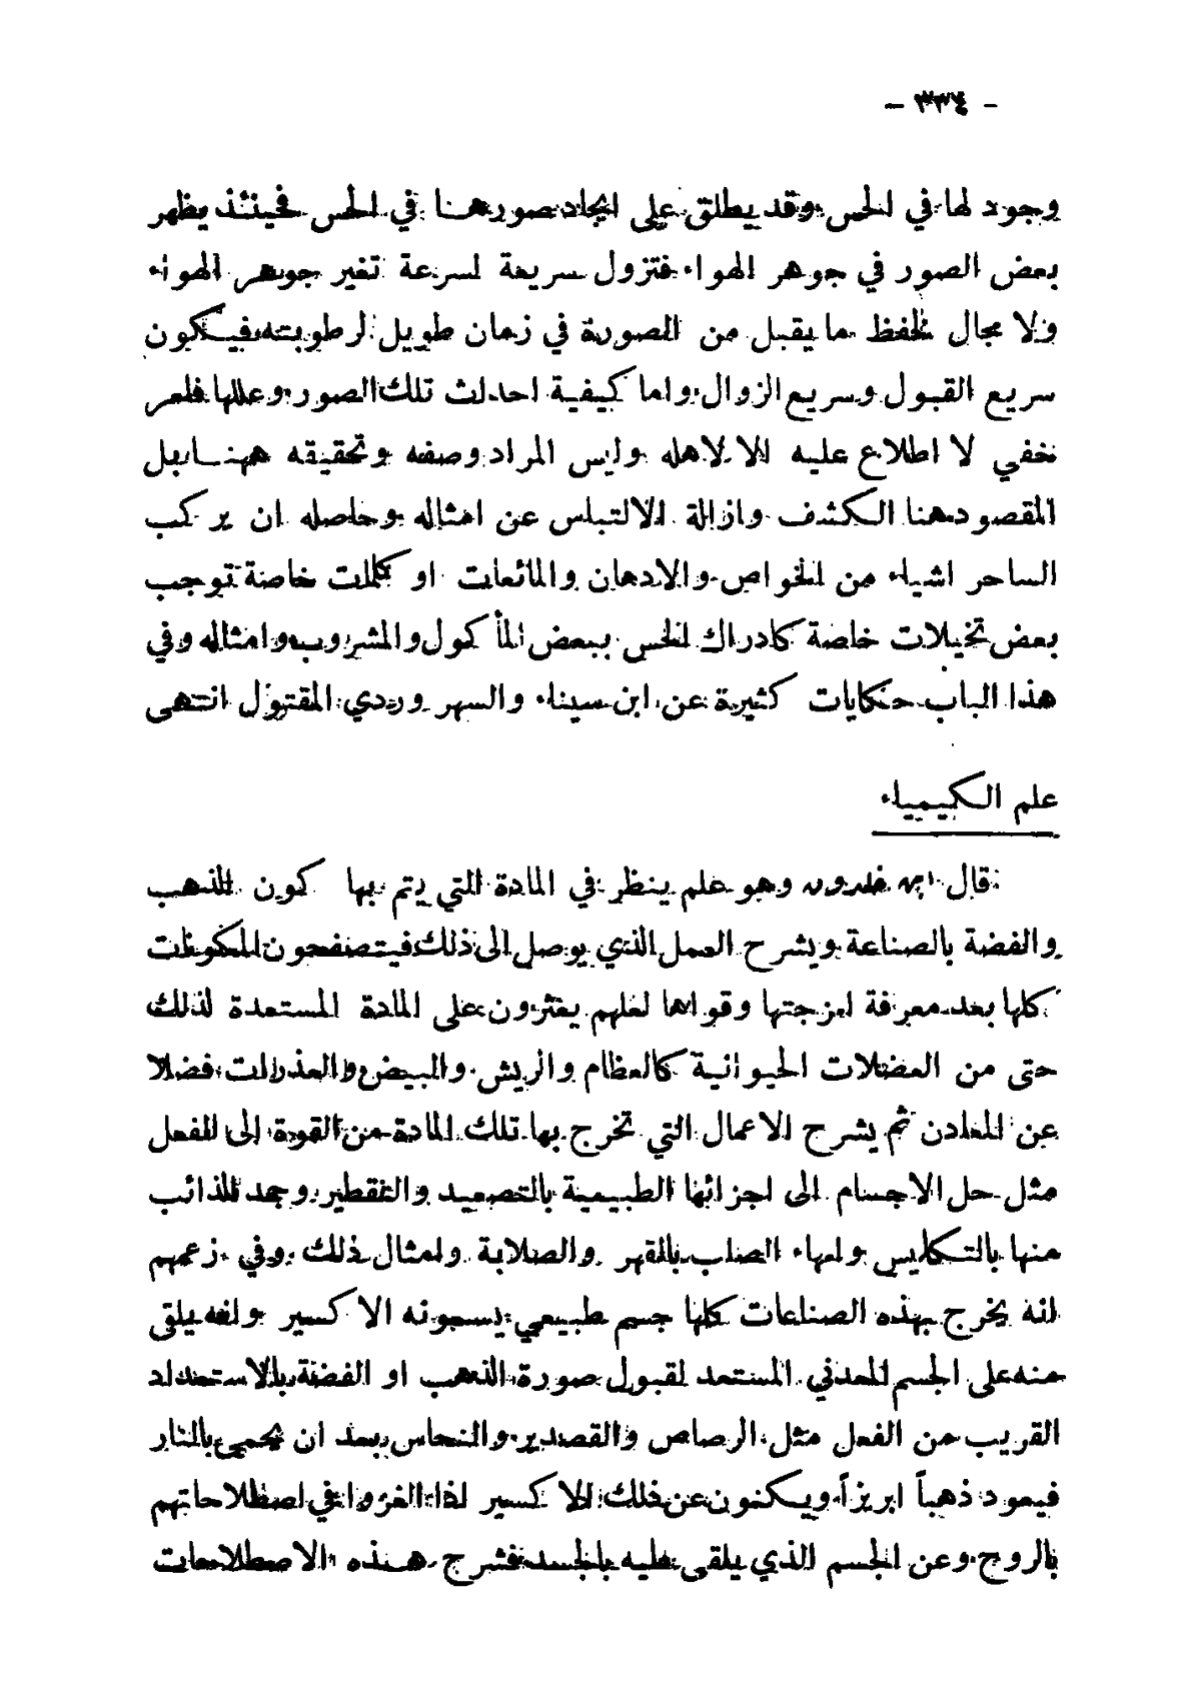 - ٣٣٤ -
وجود لها في الحس وقد يطلق على ايجاد صورهـا في الحس فحينئذ يظهر
بعض الصور في جوهر الهواء فتزول سريعة لسرعة تغير جوهر الهواء
ولا مجال لحفظ ما يقبل من الصورة في زمان طويل لرطوبته فيكون
سريع القبول وسريع الزوال واما كيفية احداث تلك الصور وعللها فامر
خفي لا اطلاع عليه الا لاهله وليس المراد وصفه وتحقيقه ههنا بل
المقصود هنا الكشف وازالة الالتباس عن امثاله وحاصله ان يركب
الساحر اشياء من الخواص والادهان والمائعات او كلمات خاصة توجب
بعض تخيلات خاصة كادراك الحس ببعض المأكول والمشروب وامثاله وفي
هذا الباب حكايات كثيرة عن ابن سيناء والسهر وردي المقتول انتهى
علم الكيمياء
قال ابن خلدون وهو علم ينظر في المادة التي يتم بها كون الذهب
والفضة بالصناعة ويشرح العمل الذي يوصل الى ذلك فيتصفحون المكونات
كلها بعد معرفة امزجتها وقواها لعلهم يعثرون على المادة المستعدة لذلك
حتى من الفضلات الحيوانية كالعظام والريش والبيض والعذرات فضلا
عن المعادن ثم يشرح الاعمال التي تخرج بها تلك المادة من القوة الى الفعل
مثل حل الاجسام الى اجزائها الطبيعية بالتصعيد والتقطير وجمد الذائب
منها بالتكليس وامهاء الصلب بالقهر والصلابة وامثال ذلك وفي زعمهم
انه يخرج بهذه الصناعات كلها جسم طبيعي يسمونه الاكسير وانه يلقى
منه على الجسم المعدني المستعد لقبول صورة الذهب او الفضة بالاستعداد
القريب من الفعل مثل الرصاص والقصدير والنحاس بعد ان يحمى بالنار
فيعود ذهباً ابريزاً ويكنون عن ذلك الاكسير اذا الغزوا في اصطلاحاتهم
بالروح وعن الجسم الذي يلقى عليه بالجسد فشرح هـذه الاصطلاحات